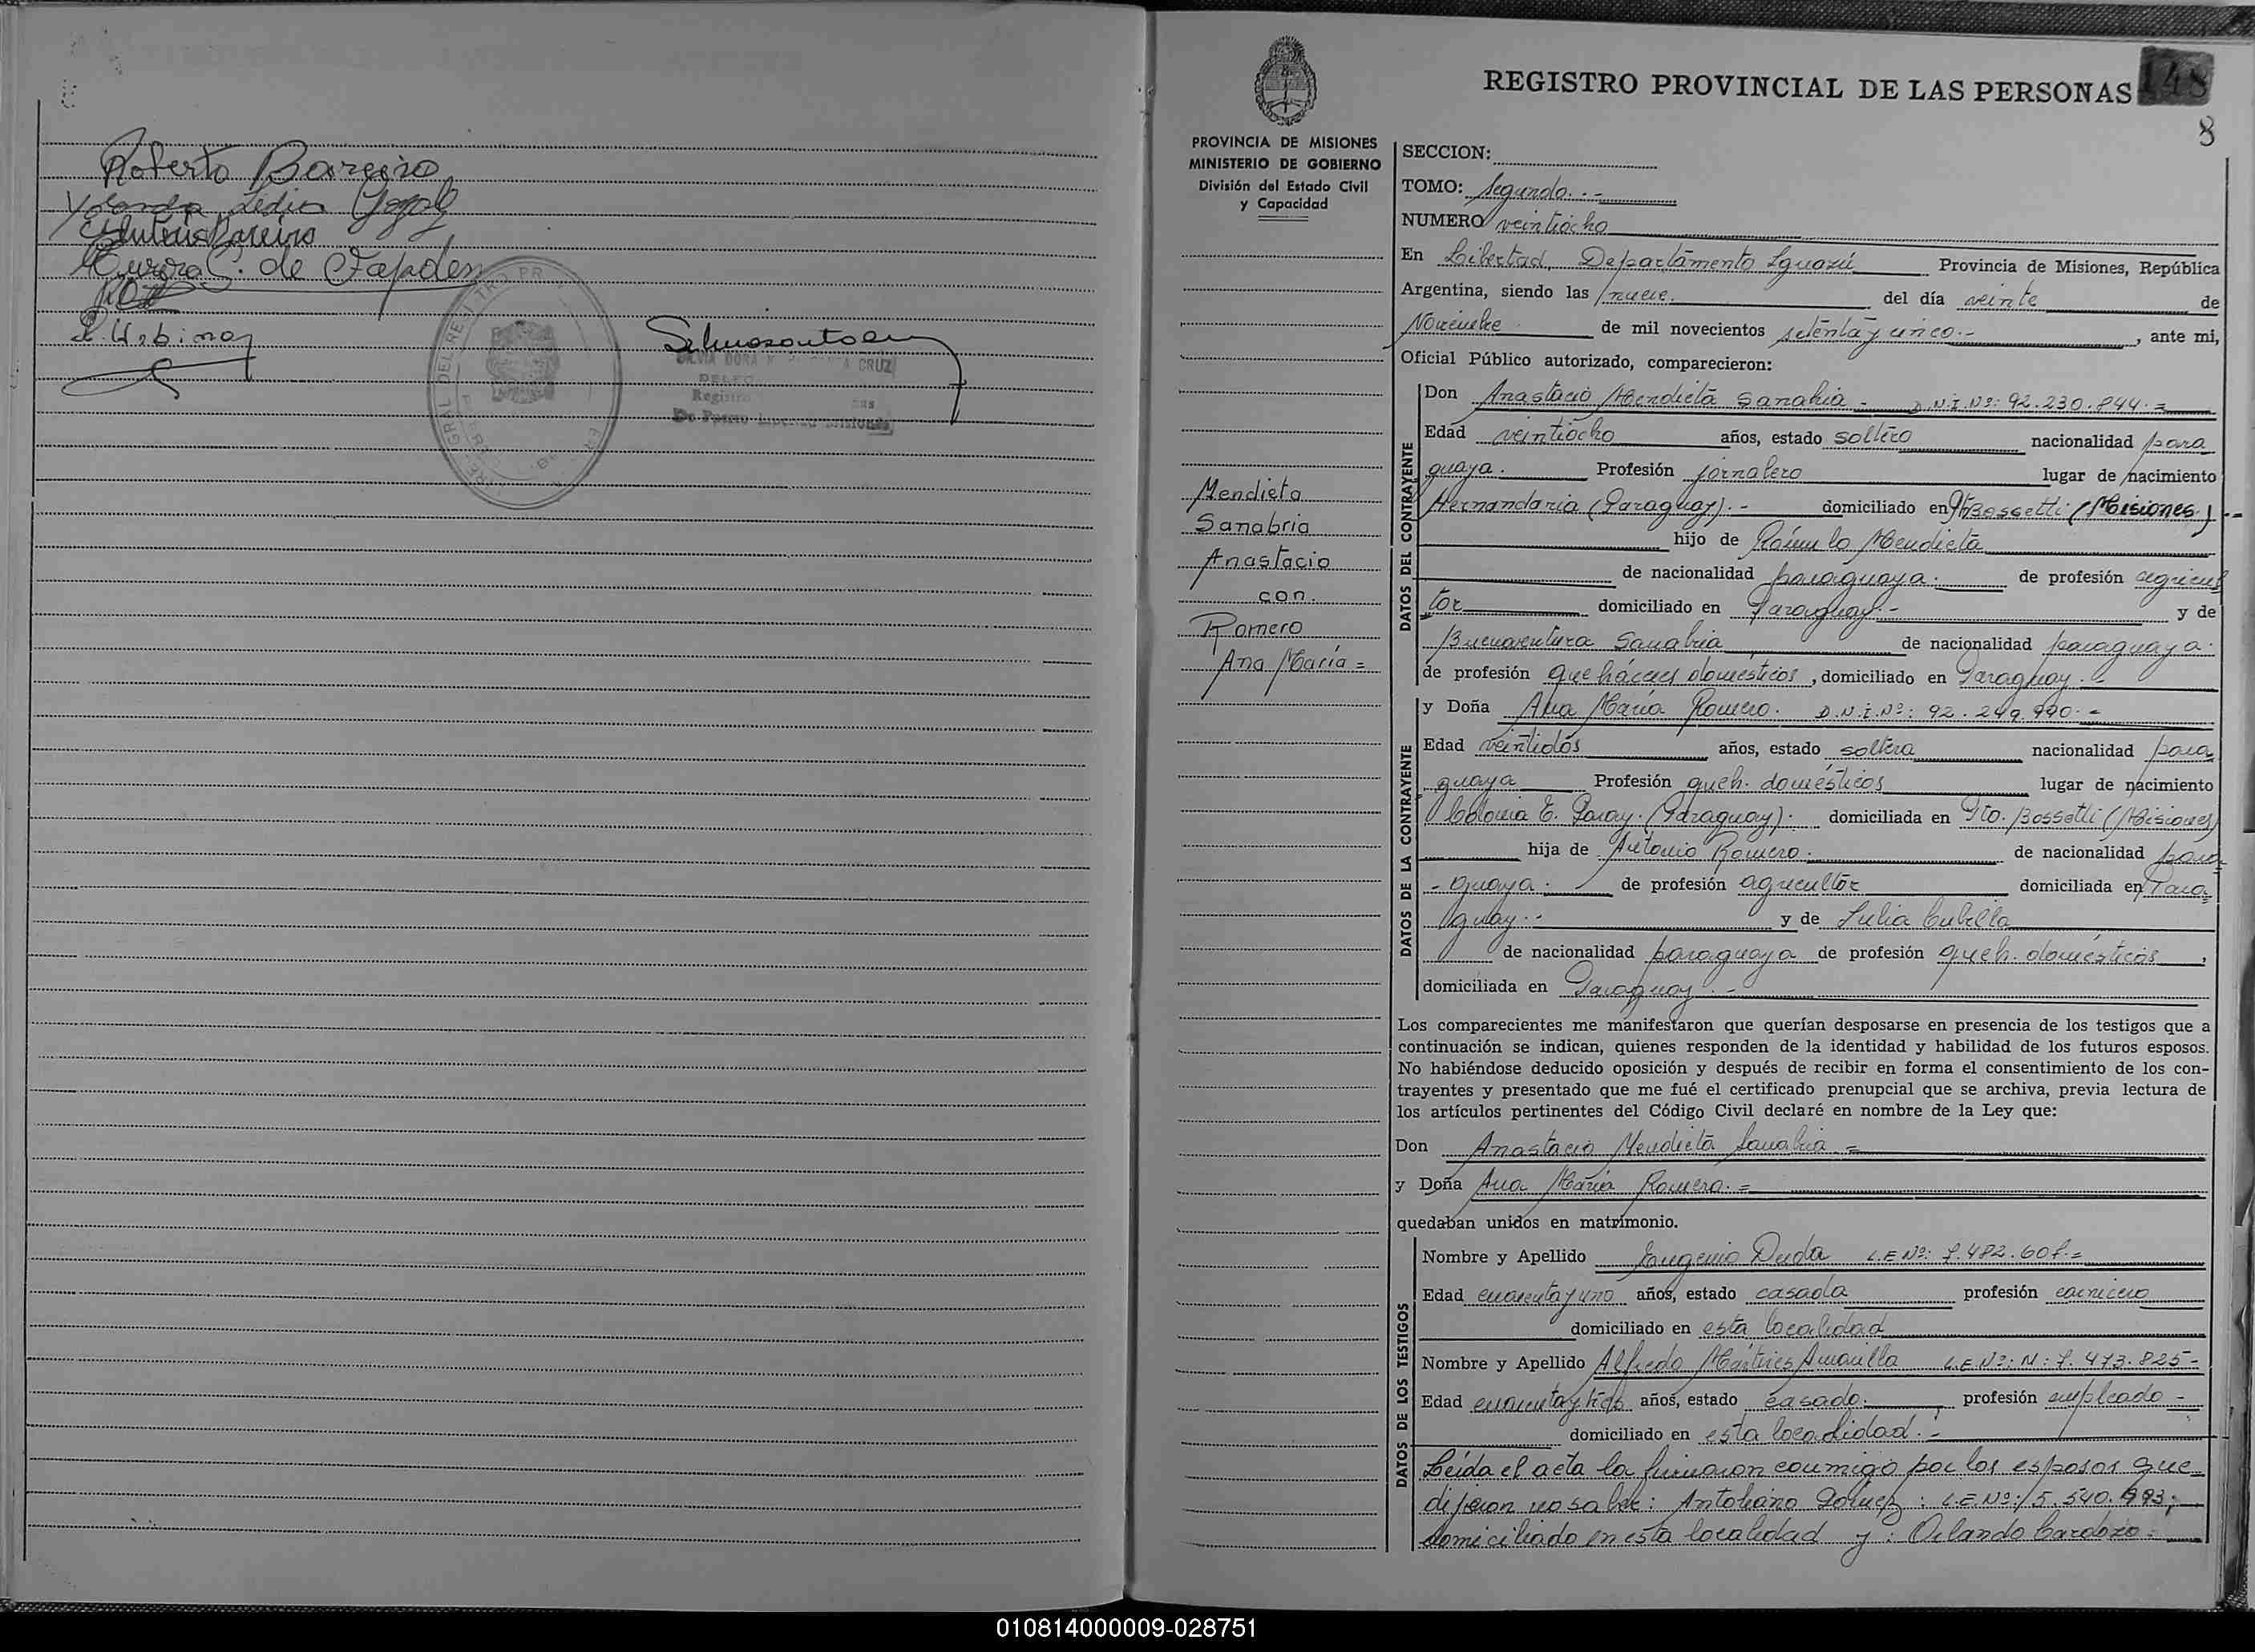 Roberto Bareiro
Yolanda Ledia
Bareiro
Aurora C. de
R. Urbina
SILVIA DORA CRUZ
Registro
De Puerto Libertad Misiones
REGISTRO PROVINCIAL DE LAS PERSONAS 148
8
PROVINCIA DE MISIONES
MINISTERIO DE GOBIERNO
División del Estado Civil
y Capacidad
Mendieta
Sanabria
Anastacio
con
Romero
Ana María =
SECCION:
TOMO: Segundo.-
NUMERO veintiocho
En Libertad, Departamento Iguazú Provincia de Misiones, República
Argentina, siendo las nueve. del día veinte de
Noviembre de mil novecientos setenta y uno.- , ante mi,
Oficial Público autorizado, comparecieron:
DATOS DEL CONTRAYENTE
Don Anastacio Mendieta Sanabria - D.N.I.Nº: 92.230.844.=
Edad veintiocho años, estado soltero nacionalidad para
guaya. Profesión jornalero lugar de nacimiento
Hernandaria (Paraguay).- domiciliado en Pto Bossetti (Misiones)--
hijo de Rómulo Mendieta
de nacionalidad paraguaya. de profesión agricul
tor domiciliado en Paraguay.- y de
Buenaventura Sanabria de nacionalidad paraguaya.
de profesión quehaceres domésticos , domiciliado en Paraguay.-
DATOS DE LA CONTRAYENTE
y Doña Ana María Romero. D.N.I.Nº: 92.249.990.=
Edad veintidós años, estado soltera nacionalidad para
guaya Profesión queh. domésticos lugar de nacimiento
Colonia E. Garay. (Paraguay). domiciliada en Pto. Bossetti (Misiones)
hija de Antonio Romero. de nacionalidad para=
-guaya. de profesión agricultor domiciliada en Para=
guay.- y de Julia Cubilla
de nacionalidad paraguaya de profesión queh. domésticos ,
domiciliada en Paraguay.-
Los comparecientes me manifestaron que querían desposarse en presencia de los testigos que a
continuación se indican, quienes responden de la identidad y habilidad de los futuros esposos.
No habiéndose deducido oposición y después de recibir en forma el consentimiento de los con-
trayentes y presentado que me fué el certificado prenupcial que se archiva, previa lectura de
los artículos pertinentes del Código Civil declaré en nombre de la Ley que:
Don Anastacio Mendieta Sanabria.=
y Doña Ana María Romero.=
quedaban unidos en matrimonio.
DATOS DE LOS TESTIGOS
Nombre y Apellido Eugenio Duda L.E Nº:
Edad cuarenta y uno años, estado casado profesión carnicero
domiciliado en esta localidad
Nombre y Apellido Alfredo Martires Amarilla L.E Nº: M: 7.473.825-
Edad cuarenta y años, estado casado. profesión empleado -
domiciliado en esta localidad.-
Leída el acta la firmaron conmigo por los esposos que
dijeron no saber: Antoliano Gómez: L.E.Nº: 5.540.993;
domiciliado en esta localidad y: Orlando Cardozo
010814000009-028751